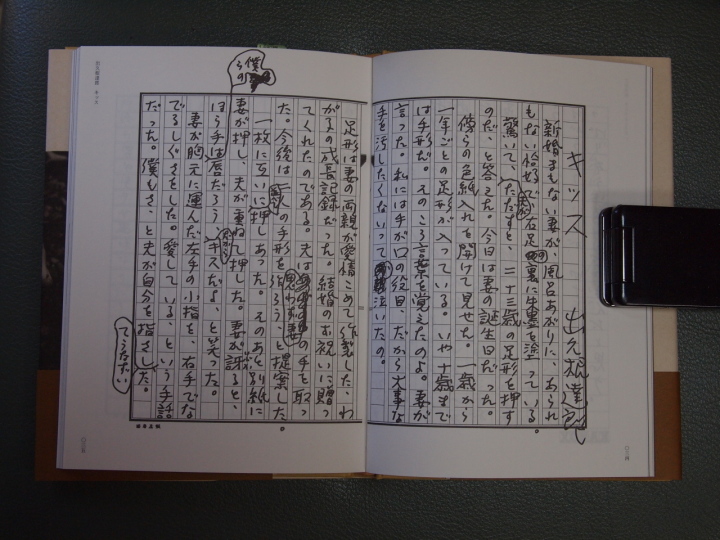 キッス
出久根達郎
新婚まもない妻が、風呂あがりに、あられ
もない恰好で、右足の裏に朱墨を塗っている。
驚いて、ただすと、二十三歳の足形を押す
のだ、と答えた。今日は妻の誕生日だった。
傍らの色紙入れを開けて見せた。一歳から
一年ごとの足形が入っている。いや十歳まで
は手形だ。そのころ言葉を覚えたのよ。妻が
言った。私には手が口の役目、だから大事な
手を汚したくないって泣いたの。
足形は妻の両親が愛情こめて作製した、わ
が子の成長記録だった。結婚のお祝いに贈っ
てくれたのである。夫は思わず妻の手を取っ
た。今後は二人の手形を作ろう、と提案した。
一枚に互いに押しあった。そのあと別紙に
妻が押し、夫が重ねて押した。妻が訝ると、
僕らの
ほう手は唇だろう、だからキスだよ、と笑った。
妻が胸元に運んだ左手の小指を、右手でな
でるしぐさをした。愛している、という手話
だった。僕もさ、と夫が自分を指さした。
てうなずい